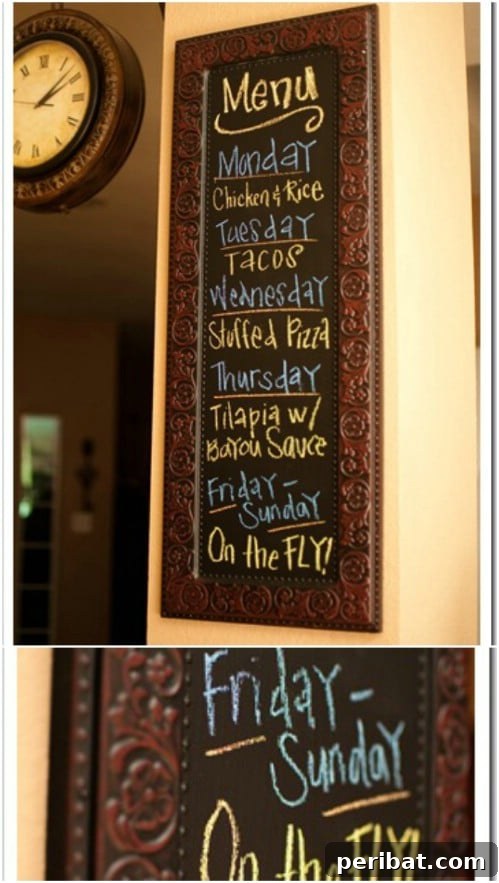 Menu
Monday
Chicken & Rice
Tuesday
Tacos
Wednesday
Stuffed Pizza
Thursday
Tilapia w/
Bayou Sauce
Friday-
Sunday
On the FLY!
Friday-
Sunday
On the FLY!
peribat.com